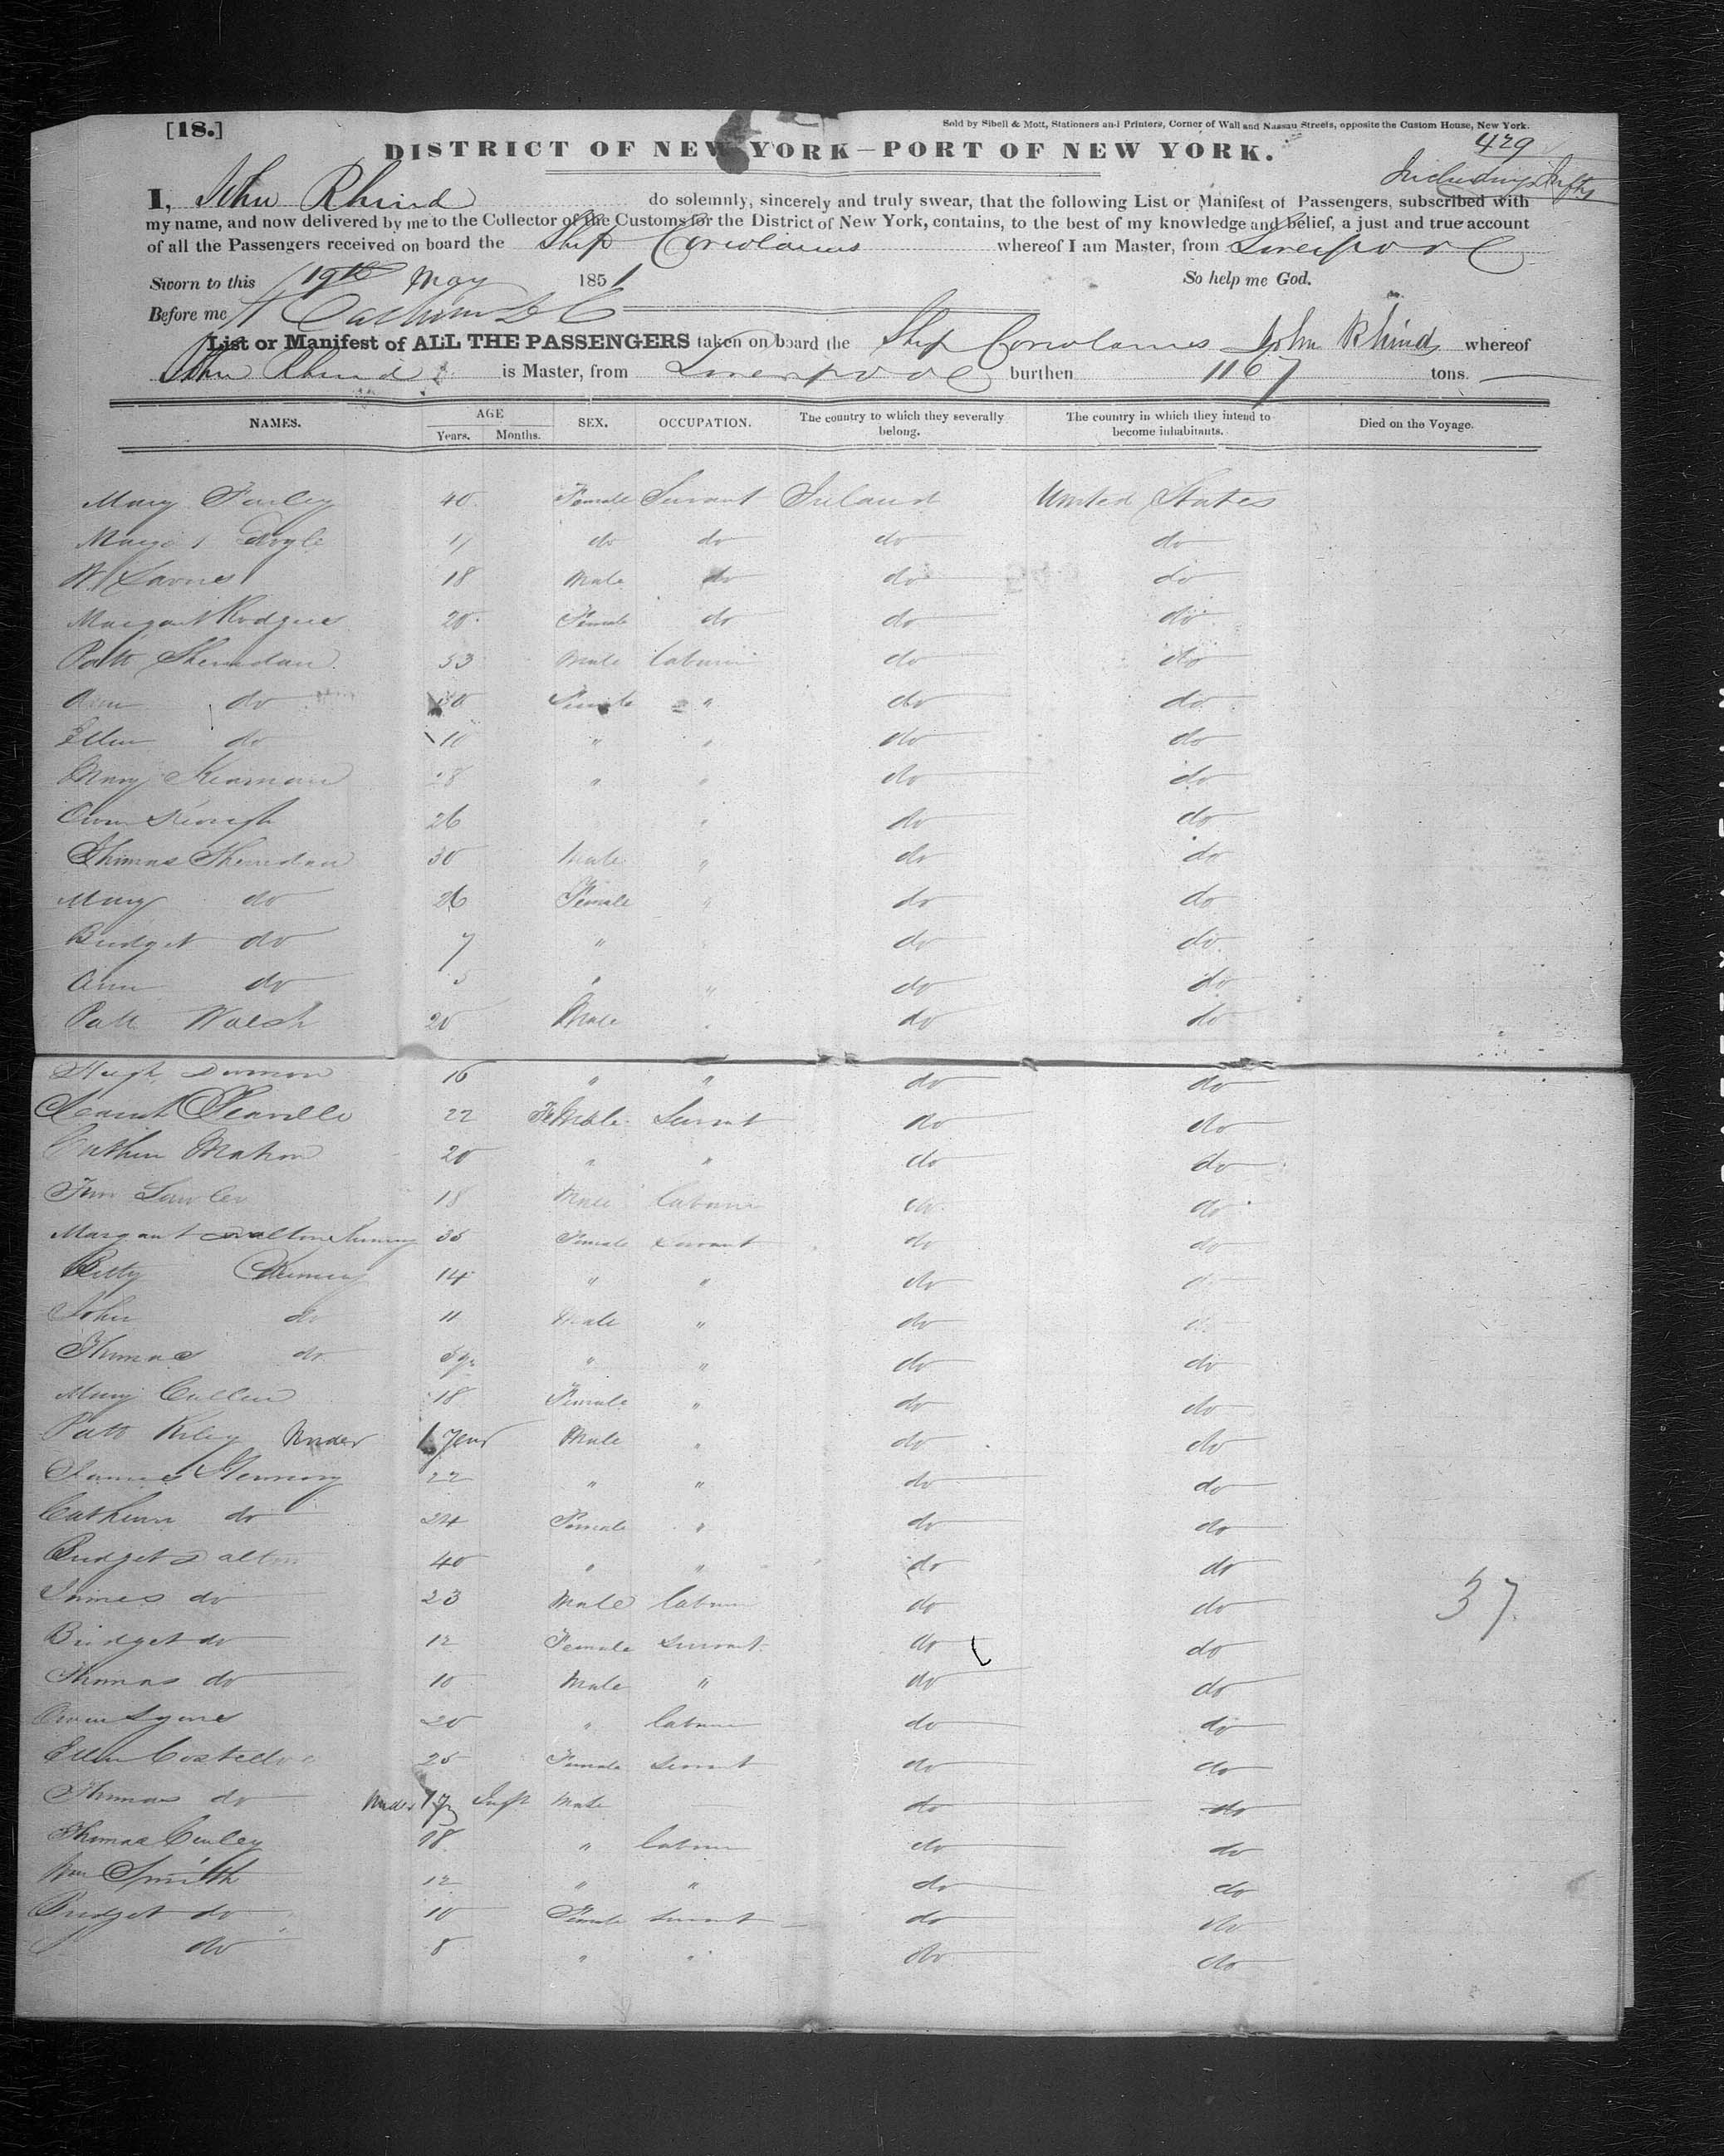 [18.]
Sold by Sibell & Mott, Stationers and Printers, Corner of Wall and Nassau Streets, opposite the Custom House, New York.
429
DISTRICT OF NEW YORK—PORT OF NEW YORK.
Including
I, John Rhind do solemnly, sincerely and truly swear, that the following List or Manifest of Passengers, subscribed with
my name, and now delivered by me to the Collector of the Customs for the District of New York, contains, to the best of my knowledge and belief, a just and true account
of all the Passengers received on board the Ship Coriolanus whereof I am Master, from Liverpool
Sworn to this 19th May 1851 So help me God.
Before me
List or Manifest of ALL THE PASSENGERS taken on board the Ship Coriolanus John Rhind whereof
John Rhind is Master, from Liverpool burthen 1167 tons.
NAMES. AGE Years. Months. SEX. OCCUPATION. The country to which they severally belong. The country in which they intend to become inhabitants. Died on the Voyage.
Mary Farley 40 Female Servant Ireland United States
Doyle do do do do
18 Male do do do
Margaret Rodgers 20 Female do do do
Patt Sheridan 53 Male do do
Ann do Female " do do
Ellen do " " do do
Mary 18 " " do do
Keough 26 " do do
Thomas Sheridan 30 Male " do do
Mary do 26 Female " do do
Bridget do 7 " do do
Ann do 5 " " do do
Patt Walsh 20 Male do do
Hugh 16 " " do do
22 Female Servant do do
Mahon 20 " " do do
18 Male do do
Margaret Dalton 35 Female Servant do do
Betty 14 " " do do
John do 11 Male " do do
Thomas do " " do do
Mary Cullen 18 Female " do do
Patt Kiley Under 1 year Male " do do
22 " " do do
do 24 Female " do do
Bridget Dalton 40 " " do do
James do 23 Male do do
37
Bridget do 12 Female Servant do do
Thomas do 10 Male " do do
Lyons 20 " do do
Ellen Costello 25 Female Servant do do
Thomas do Under 1 Male do do
Thomas 18 " do do
Wm Smith 12 " " do do
Bridget do 10 Female Servant do do
do 8 " " do do